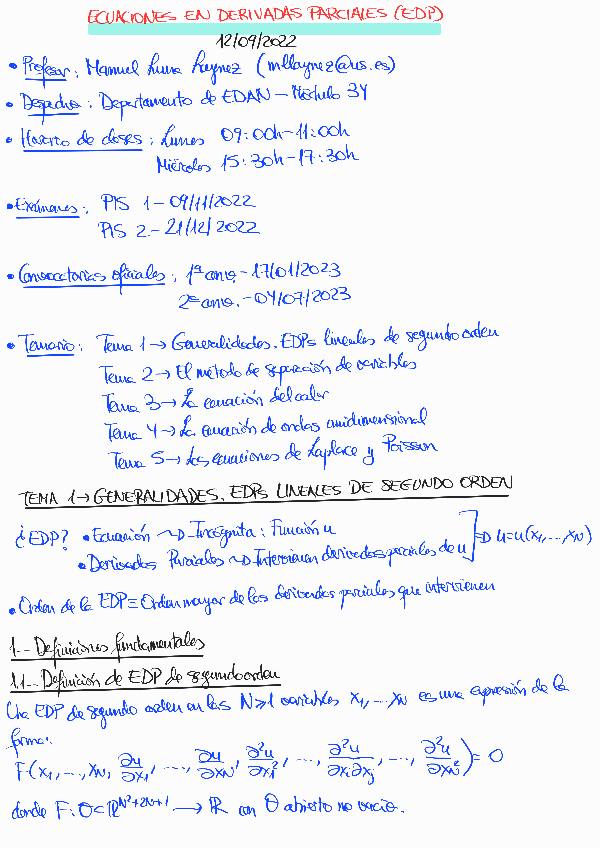 ECUACIONES EN DERIVADAS PARCIALES (EDP)
12/09/2022
• Profesor: Manuel Luna Laynez (mllaynez@us.es)
• Despacho: Departamento de EDAN - Módulo 34
• Horario de clases: Lunes 09:00h-11:00h
Miércoles 15:30h-17:30h
• Exámenes: PIS 1 - 09/11/2022
PIS 2.- 21/12/2022
• Convocatorias oficiales: 1ª conv.- 17/01/2023
2ª conv.- 04/07/2023
• Temario: Tema 1 → Generalidades. EDPs lineales de segundo orden
Tema 2 → El método de separación de variables
Tema 3 → La ecuación del calor
Tema 4 → La ecuación de ondas unidimensional
Tema 5 → Las ecuaciones de Laplace y Poisson
TEMA 1 → GENERALIDADES. EDPs LINEALES DE SEGUNDO ORDEN
¿EDP? • Ecuación ⇝ Incógnita: Función u
• Derivadas Parciales ⇝ Intervienen derivadas parciales de u ] ⇒ u=u(x₁,...,x_N)
• Orden de la EDP ≡ Orden mayor de las derivadas parciales que intervienen
1.- Definiciones fundamentales
1.1.- Definición de EDP de segundo orden
Una EDP de segundo orden en las N≥1 variables x₁,...,x_N es una expresión de la
forma:
F(x₁,...,x_N, ∂u/∂x₁, ..., ∂u/∂x_N, ∂²u/∂x₁², ..., ∂²u/∂x_i∂x_j, ..., ∂²u/∂x_N²) = 0
donde F: O⊂ℝ^(N²+2N+1) → ℝ con O abierto no vacío.